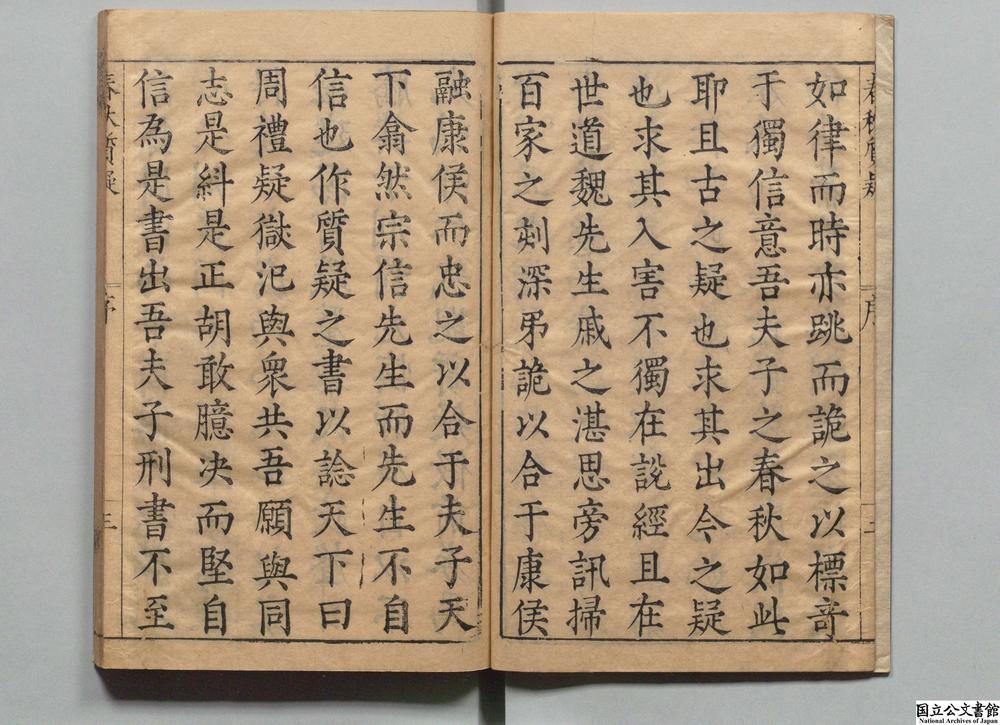 如律而時亦跳而詭之以標竒
于獨信意吾夫子之春秋如此
耶且古之疑也求其出今之疑
也求其入害不獨在說經且在
世道魏先生戚之湛思旁訊掃
百家之刻深弔詭以合于康侯
融康侯而忠之以合于夫子天
下翕然宗信先生而先生不自
信也作質疑之書以諗天下曰
周禮疑獄汜與衆共吾願與同
志是糾是正胡敢臆决而堅自
信為是書出吾夫子刑書不至
春秋質疑
序
三
国立公文書館
National Archives of Japan